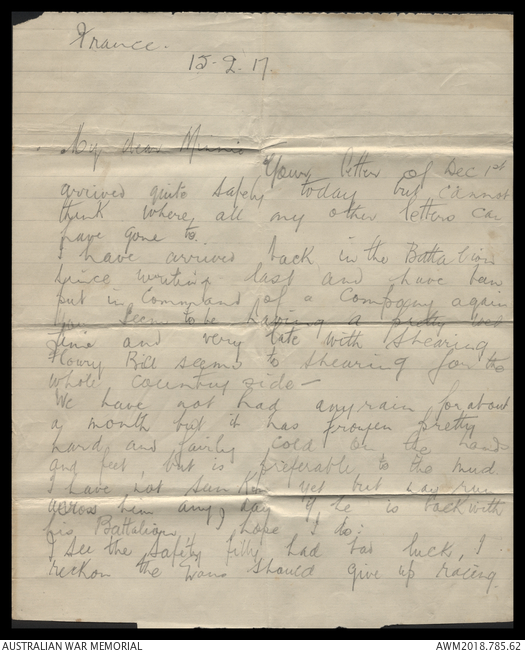 France.
15-2.17.
My dear
Your letter of Dec 1st
arrived quite safely today but cannot
think where all my other letters can
have gone to.
I have arrived back in the Battalion
since writing last and have been
put in Command of a Company again
You seem to be having a pretty
time and very late with shearing
Bill seems to shearing for the
whole country side -
We have not had any rain for about
a month but it has frozen pretty
hard and fairly cold on the hands
and feet, but is preferable to the mud
I have not seen yet but may run
across him any day if he is back with
his Battalion, I hope I do.
I see the Safety filly had bad luck, I
reckon the should give up racing.
AUSTRALIAN WAR MEMORIAL
AWM2018.785.62